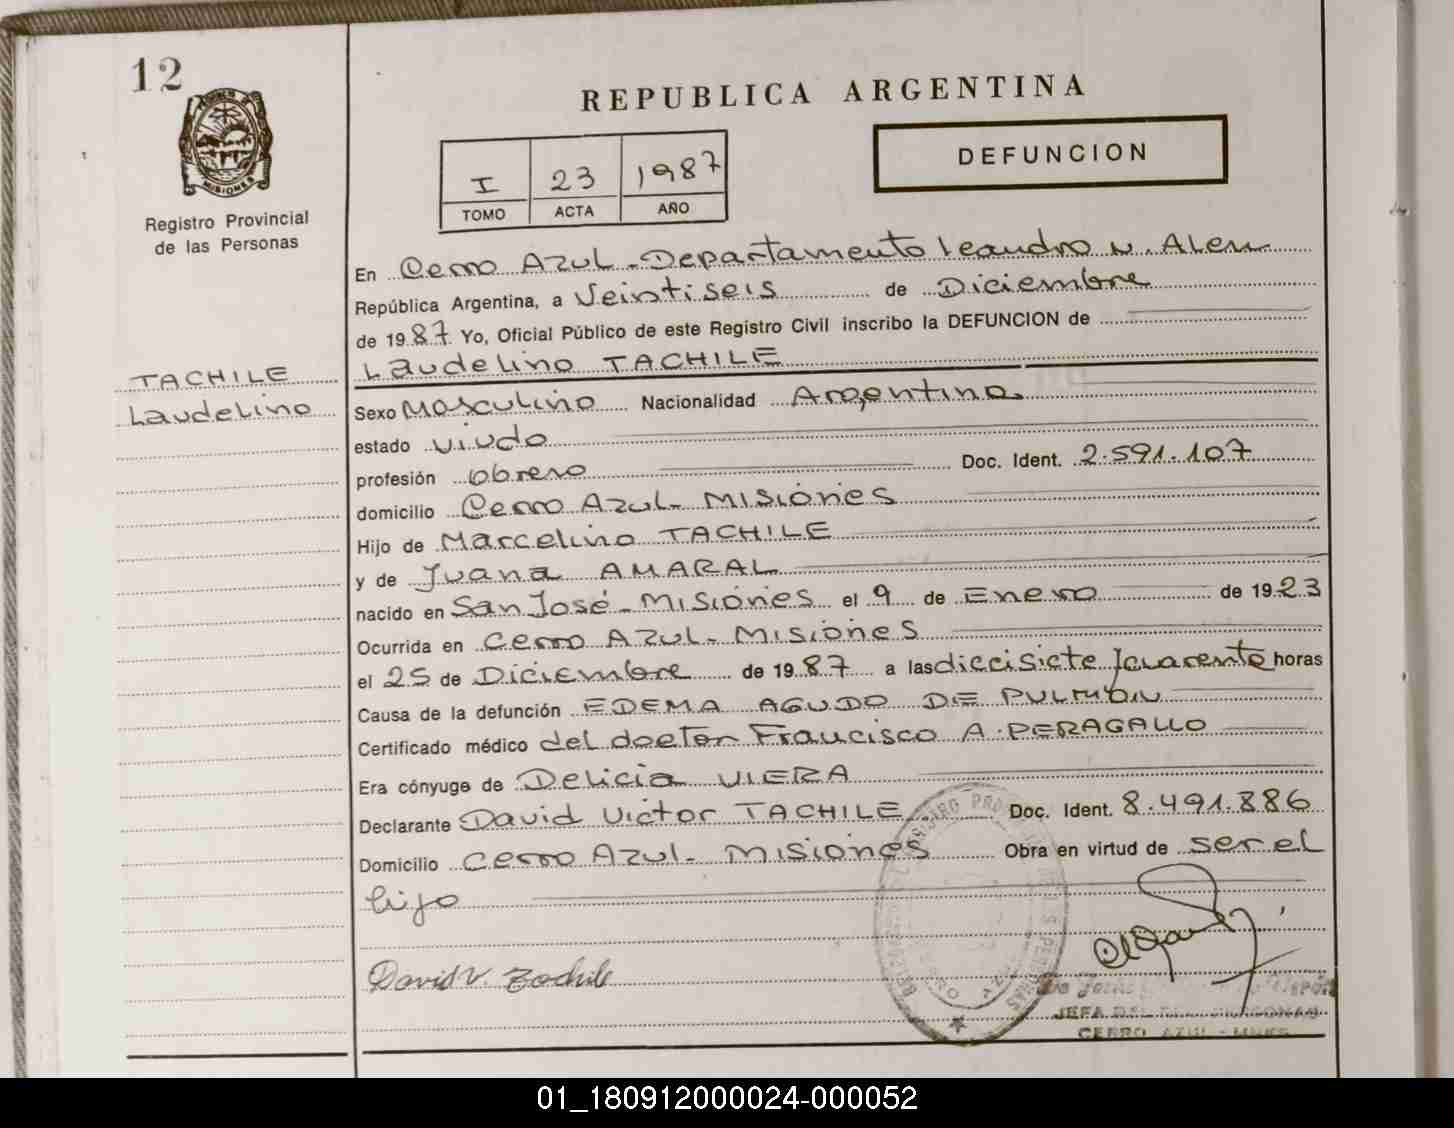 12
REPUBLICA ARGENTINA
MISIONES
Registro Provincial
de las Personas
I 23 1987
TOMO ACTA AÑO
DEFUNCION
En Cerro AZUL - Departamento Leandro N. ALEM
República Argentina, a Veintiseis de Diciembre
de 1987 Yo, Oficial Público de este Registro Civil inscribo la DEFUNCION de
Laudelino TACHILE
TACHILE
Laudelino
Sexo Masculino Nacionalidad Argentina
estado viudo
profesión obrero Doc. Ident. 2.591.107
domicilio Cerro AZUL - MISIONES
Hijo de Marcelino TACHILE
y de Juana AMARAL
nacido en San José - MISIONES el 9 de Enero de 1923
Ocurrida en Cerro AZUL - MISIONES
el 25 de Diciembre de 1987 a las diecisiete y cuarenta horas
Causa de la defunción EDEMA AGUDO DE PULMON
Certificado médico del doctor Francisco A. PERAGALLO
Era cónyuge de Delicia VIERA
Declarante David Victor TACHILE Doc. Ident. 8.491.886
Domicilio Cerro AZUL - MISIONES Obra en virtud de ser el
hijo
David V.
CERRO AZUL - MNES
01_180912000024-000052